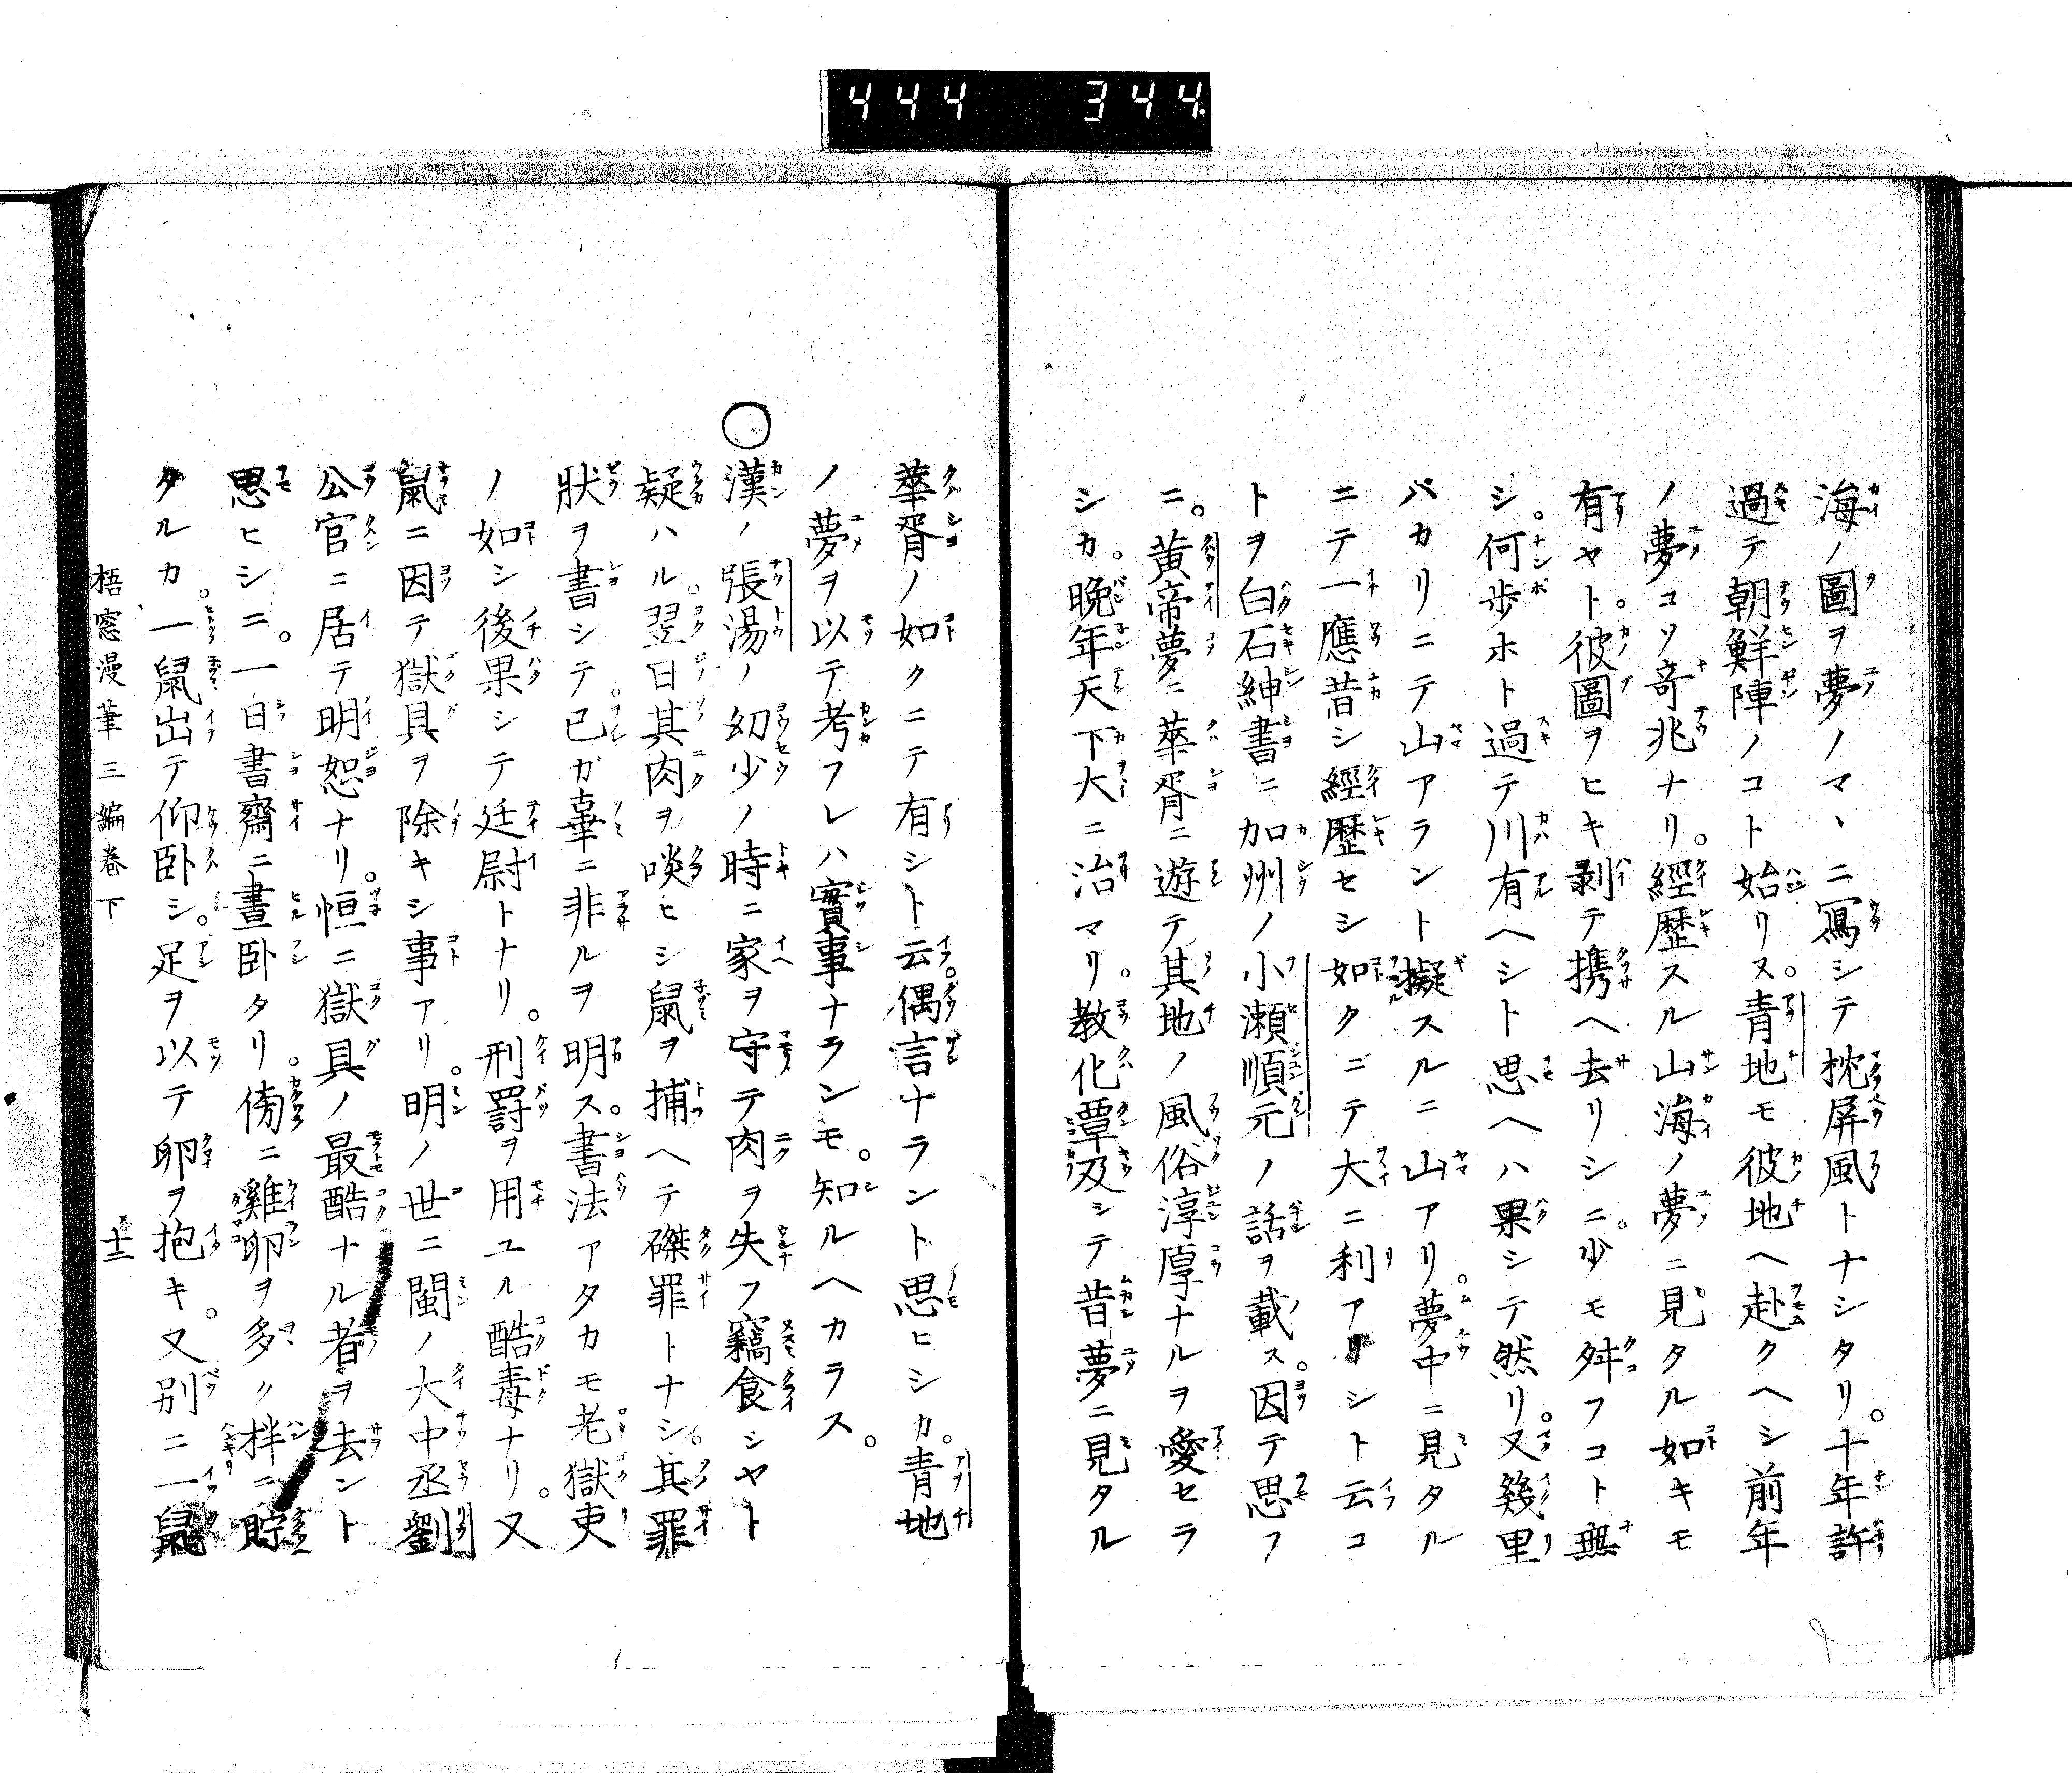 444 344
海ノ圖ヲ夢ノマヽニ寫シテ枕屏風トナシタリ。十年許
過テ朝鮮陣ノコト始リヌ。青地モ彼地ヘ赴クヘシ前年
ノ夢コソ奇兆ナリ。經歴スル山海ノ夢ニ見タル如キモ
有ヤト。彼圖ヲヒキ剥テ携ヘ去リシニ。少モ舛フコト無
シ。何歩ホト過テ川有ヘシト思ヘハ果シテ然リ。又幾里
バカリニテ山アラント擬スルニ山アリ。夢中ニ見タル
ニテ一應昔シ經歴セシ如クニテ大ニ利アリシト云コ
トヲ白石紳書ニ加州ノ小瀬順元ノ話ヲ載ス。因テ思フ
ニ。黄帝夢ニ華胥ニ遊テ其地ノ風俗淳厚ナルヲ愛セラ
シカ。晩年天下大ニ治マリ。教化覃及シテ昔夢ニ見タル
華胥ノ如クニテ有シト云。偶言ナラント思ヒシカ。青地
ノ夢ヲ以テ考フレハ實事ナランモ。知ルヘカラス。
○漢ノ張湯ノ幼少ノ時ニ家ヲ守テ肉ヲ失フ竊食シヤト
疑ハル。翌日其肉ヲ啖ヒシ鼠ヲ捕ヘテ磔罪トナシ。其罪
狀ヲ書シテ己ガ辜ニ非ルヲ明ス。書法アタカモ老獄吏
ノ如シ後果シテ廷尉トナリ。刑罰ヲ用ユル酷毒ナリ。又
鼠ニ因テ獄具ヲ除キシ事アリ。明ノ世ニ閩ノ大中丞劉
公官ニ居テ明恕ナリ。恒ニ獄具ノ最酷ナル者ヲ去ント
思ヒシニ。一日書齋ニ晝臥タリ。傍ニ雞卵ヲ多ク柈ニ貯
タルカ。一鼠出テ仰臥シ。足ヲ以テ卵ヲ抱キ。又別ニ一鼠
梧窓漫筆三編卷下 十二